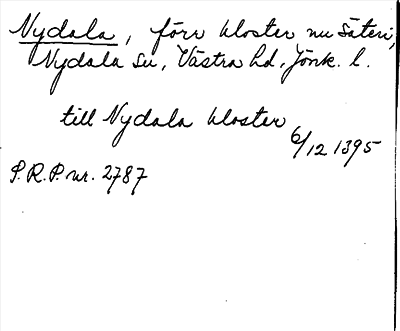 Nydala, förr kloster nu säteri,
Nydala su, Västra hd, Jönk. l.
till Nydala kloster
6/12 1395
S.R.P. nr. 2787